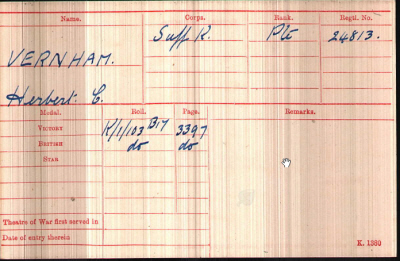 Name. Corps. Rank. Regtl. No.
VERNHAM. Suff R. Pte 24813.
Herbert C.
Medal. Roll. Page. Remarks.
VICTORY K/1/103 B17 3397
BRITISH do do
STAR
Theatre of War first served in
Date of entry therein
K. 1380